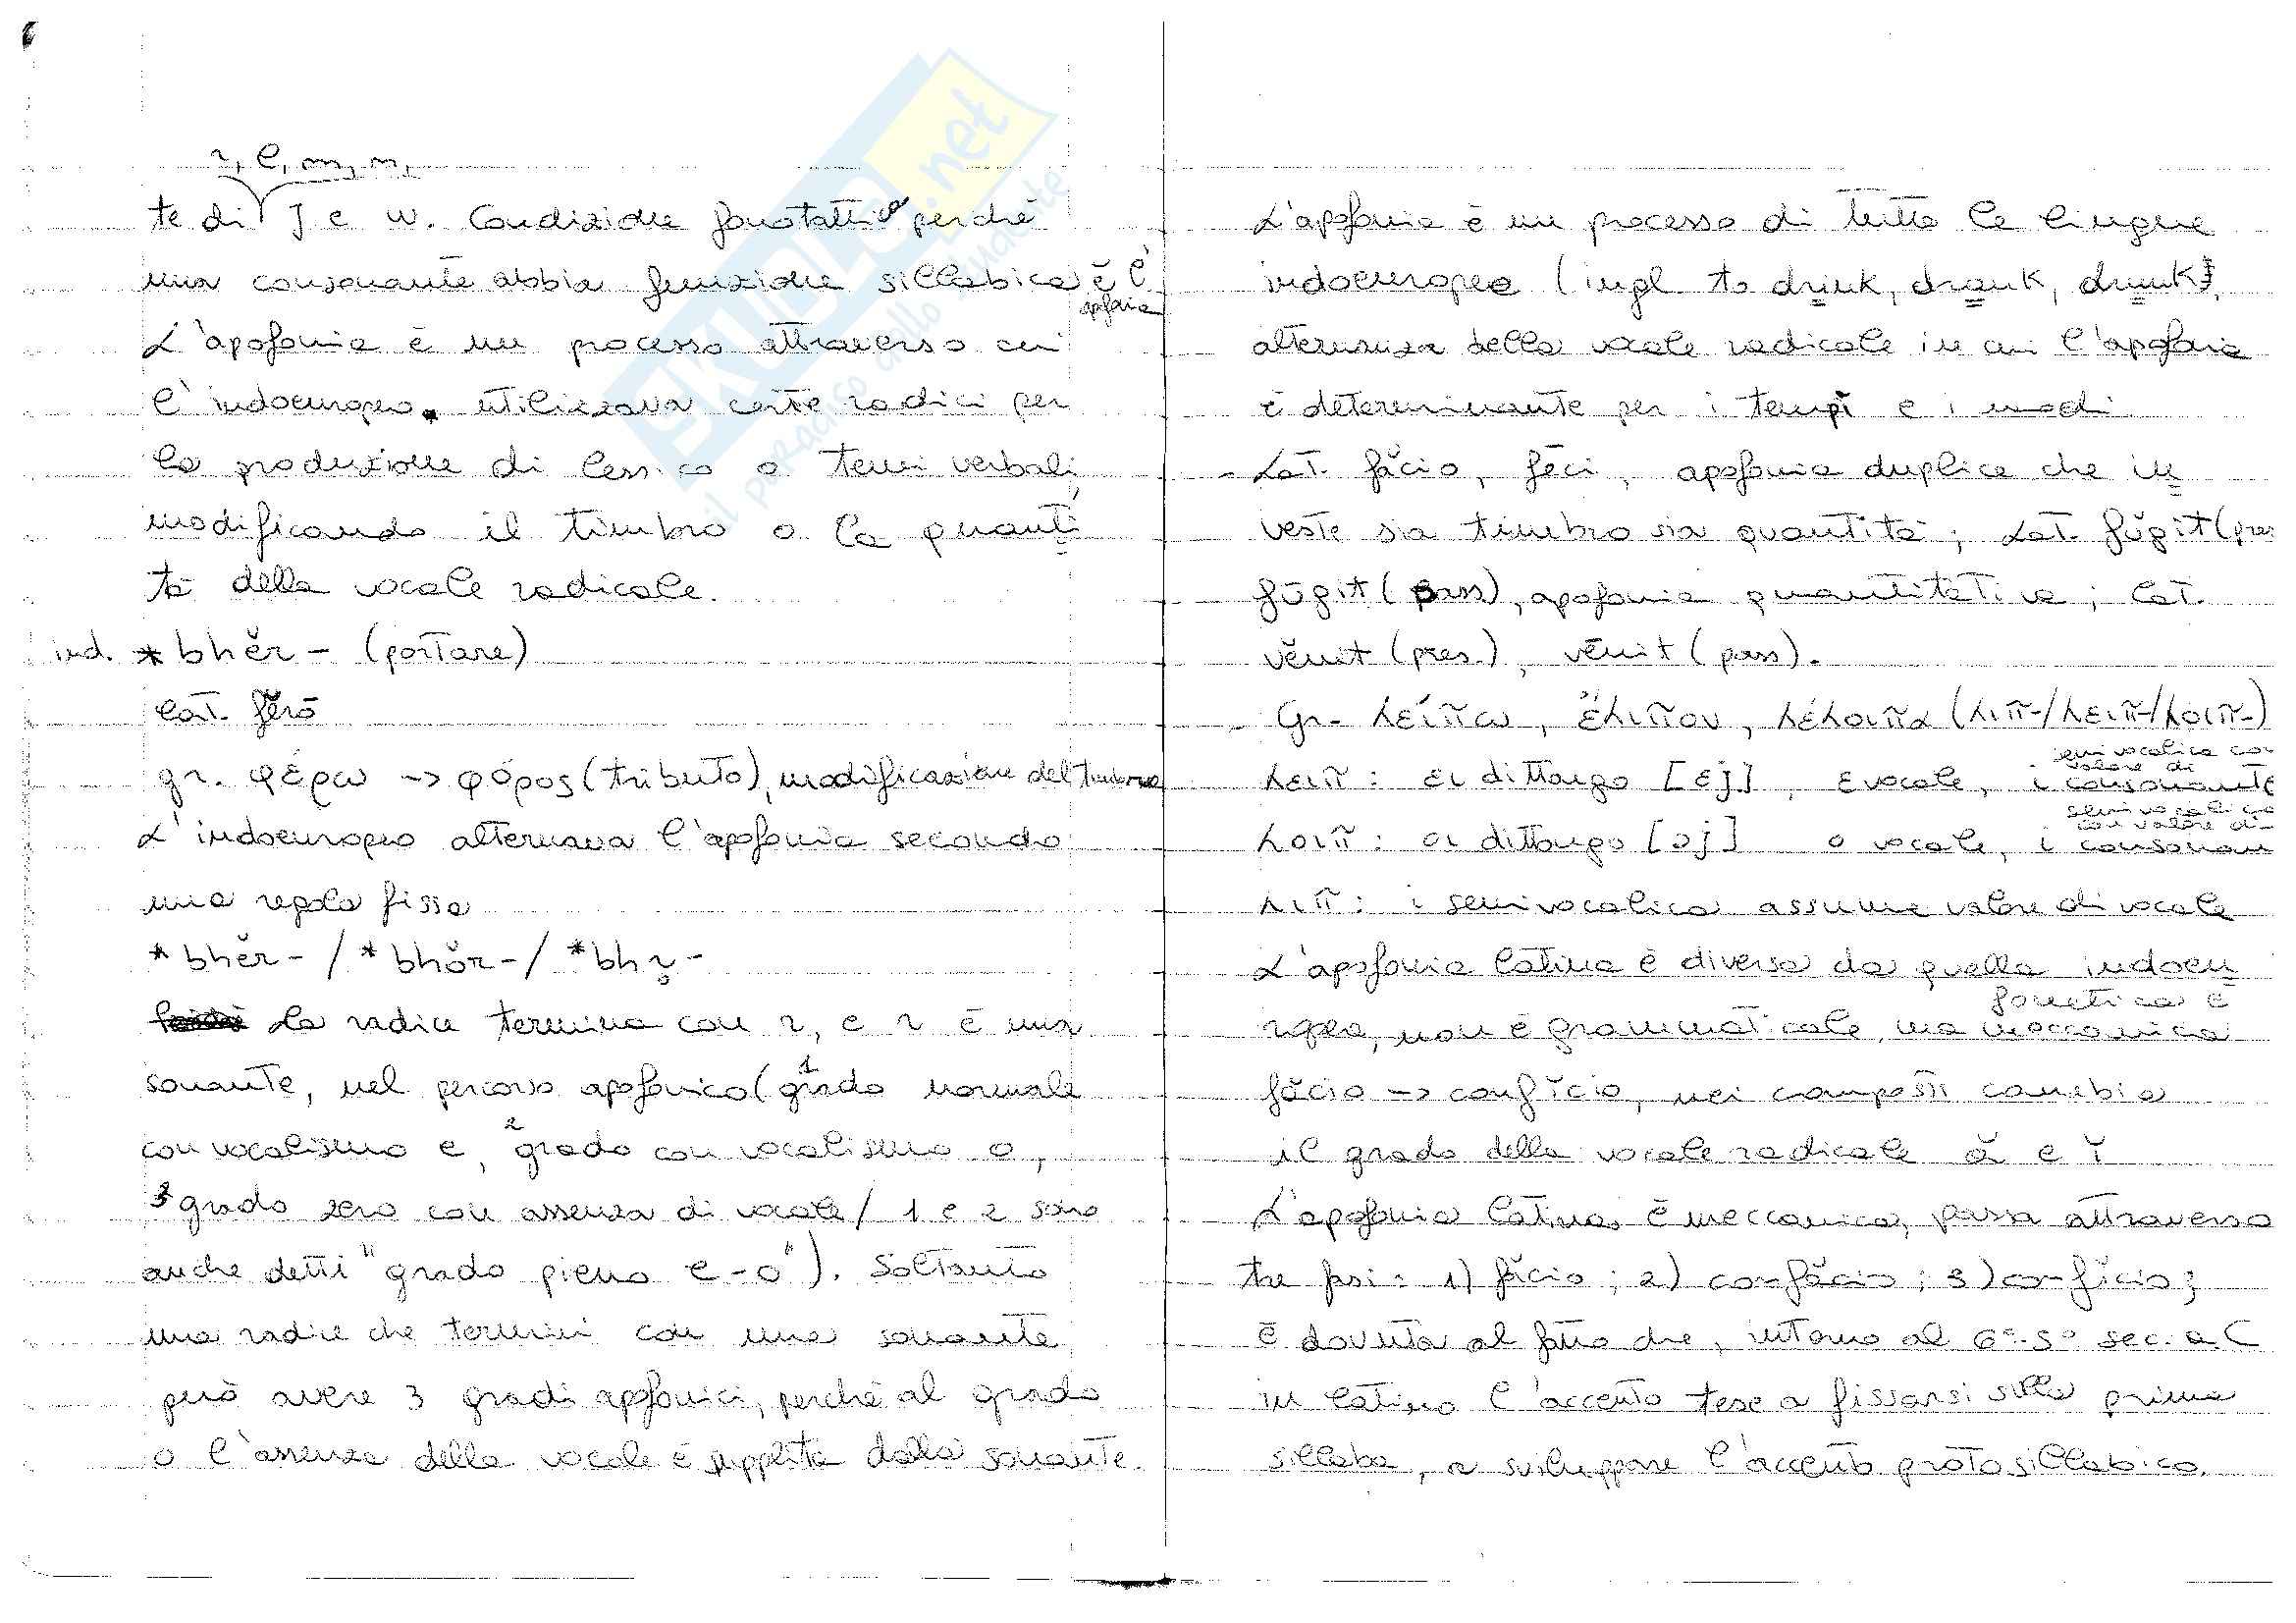 r, l, m, n,
te di J e w. Condizione fonotattica perché
una consonante abbia funzione sillabica è l'
apofonia
L'apofonia è un processo attraverso cui
l'indoeuropeo utilizzava certe radici per
la produzione di lessico o temi verbali,
modificando il timbro o la quanti
tà della vocale radicale.
ind. *bhĕr- (portare)
lat. fĕrō
gr. φέρω -> φόρος (tributo), modificazione del timbro
L'indoeuropeo alternava l'apofonia secondo
una regola fissa
*bhĕr-/*bhŏr-/*bhr̥-
La radice termina con r, e r è una
sonante, nel percorso apofonico (1 grado normale
con vocalismo e, 2 grado con vocalismo o,
3 grado zero con assenza di vocale/ 1 e 2 sono
anche detti "grado pieno e-o"). Soltanto
una radice che termini con una sonante
può avere 3 gradi apofonici, perché al grado
0 l'assenza della vocale è supplita dalla sonante.
L'apofonia è un processo di tutte le lingue
indoeuropee (ingl. to drink, drank, drunk),
alternanza della vocale radicale in cui l'apofonia
è determinante per i tempi e i modi.
- Lat. făcio, fēci, apofonia duplice che in
veste sia timbro sia quantità; Lat. fŭgit (pres
fūgit (pass), apofonia quantitativa; Lat.
vĕnit (pres.), vēnit (pass).
- Gr- λείπω, ἔλιπον, λέλοιπα (λιπ-/λειπ-/λοιπ-)
semivocalica con
valore di
λειπ: ει dittongo [εj], ε vocale, i consonante
semivocalica
con valore di
λοιπ: οι dittongo [ɔj] o vocale, i consonan
λιπ: i semivocalica assume valore di vocale
L'apofonia latina è diversa da quella indoeu
fonetica e
ropea, non è grammaticale, ma meccanica
făcio -> confĭcio, nei composti cambia
il grado della vocale radicale ă e ĭ
L'apofonia latina è meccanica, passa attraverso
tre fasi: 1) făcio; 2) confăcio; 3) confĭcio;
è dovuta al fatto che, intorno al 6°-5° sec. a.C
in latino l'accento tese a fissarsi sulla prima
sillaba, a sviluppare l'accento protosillabico.